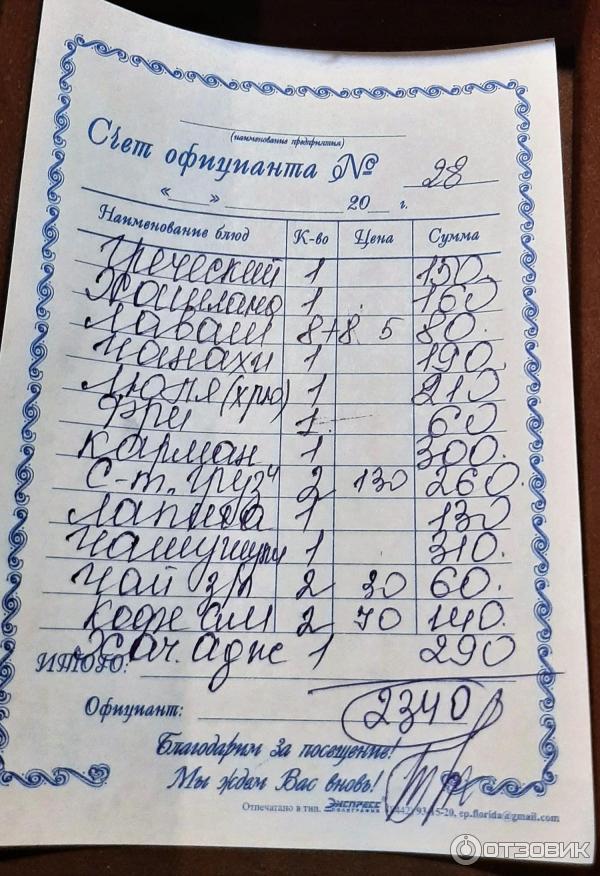 (наименование предприятия)
Счет официанта № 28
« » 20 г.
Наименование блюд К-во Цена Сумма
Греческий 1 150.
Хашлама 1 160
Лаваш 8+8 5 80.
Чанахи 1 190.
Люля (хрю) 1 210
Фри 1. 60
Карман 1 300.
С-т. груз 2 130 260.
Лапша 1 130
1 310.
Чай зл 2 30 60.
Кофе ам 2 70 140.
Хач. адж 1 290
ИТОГО:
2340
Официант:
Благодарим за посещение!
Мы ждем Вас вновь!
Отпечатано в тип. ЭКСПРЕСС 93-15-20, ep.florida@gmail.com
ОТЗОВИК